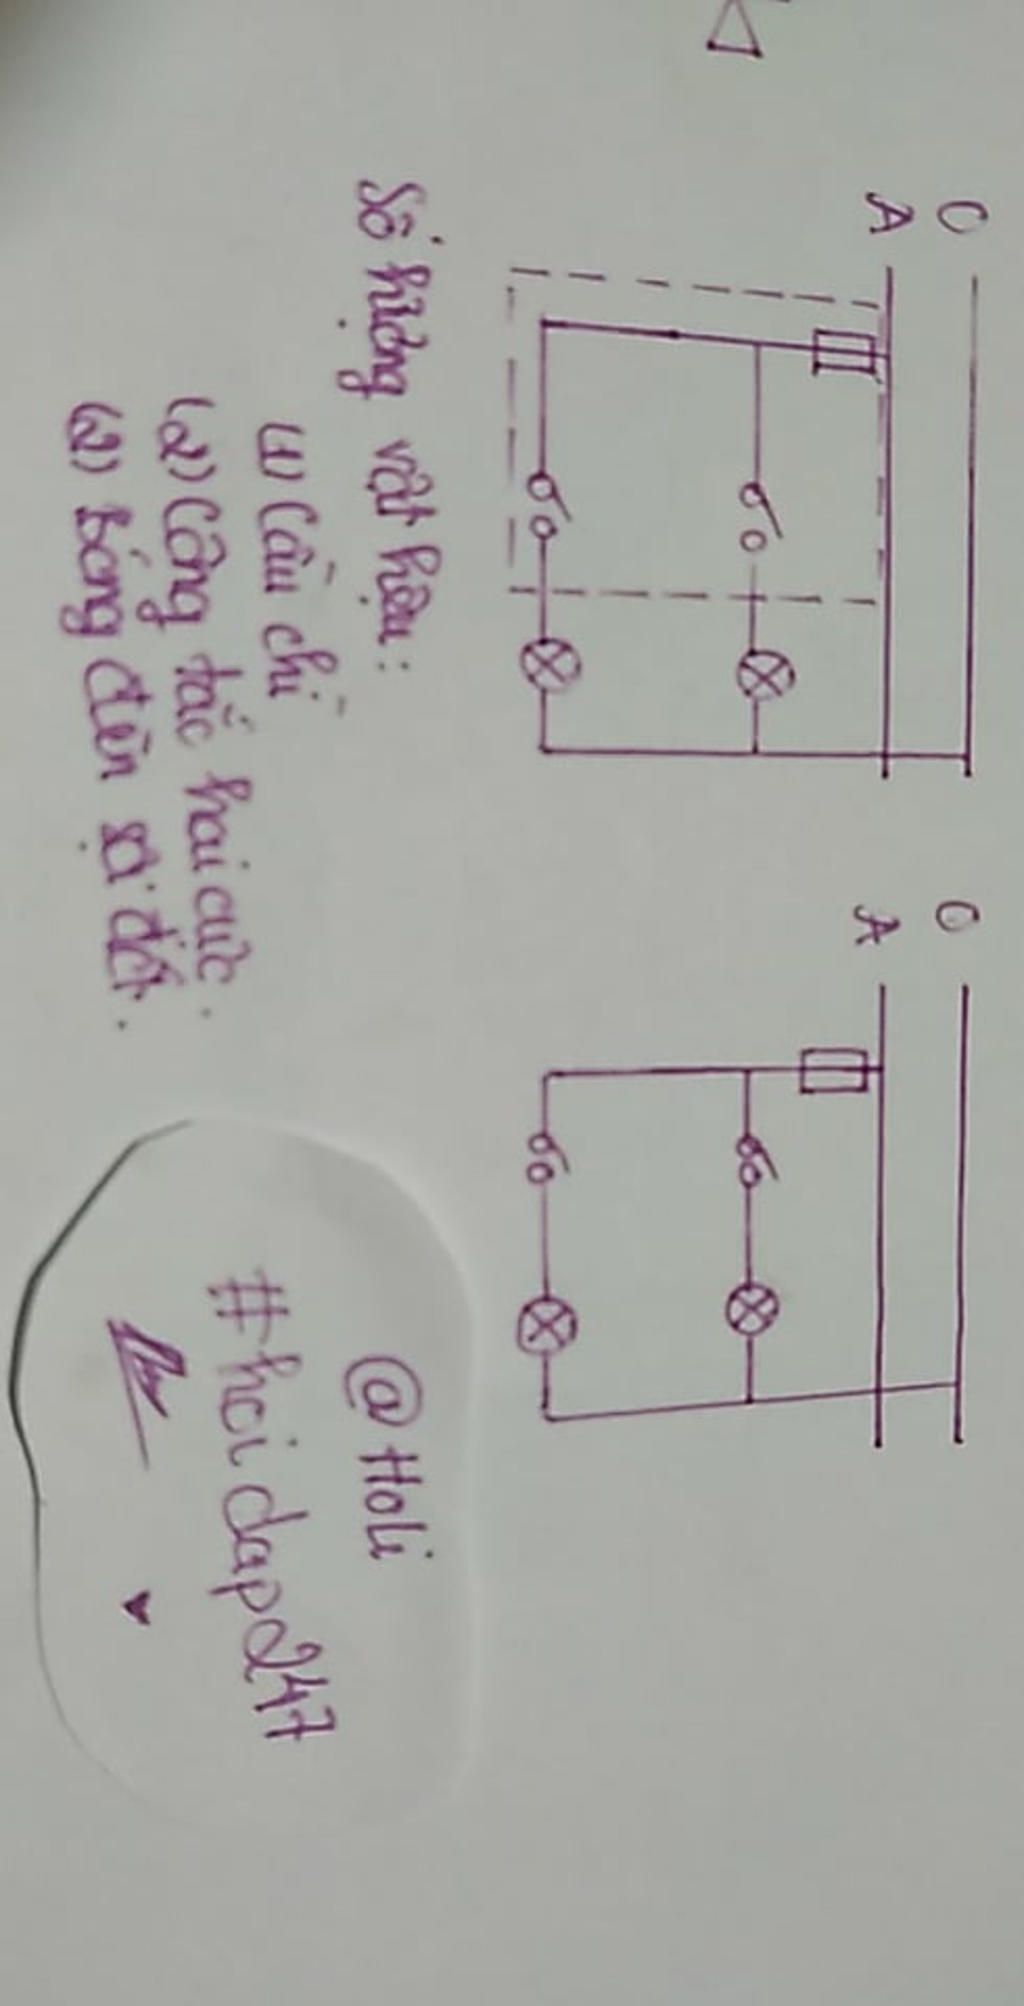 O
A
O
A
Số lượng vật liệu:
(1) Cầu chì
(2) Công tắc hai cực.
(2) bóng đèn sợi đốt.
@Holi
#hoidap247